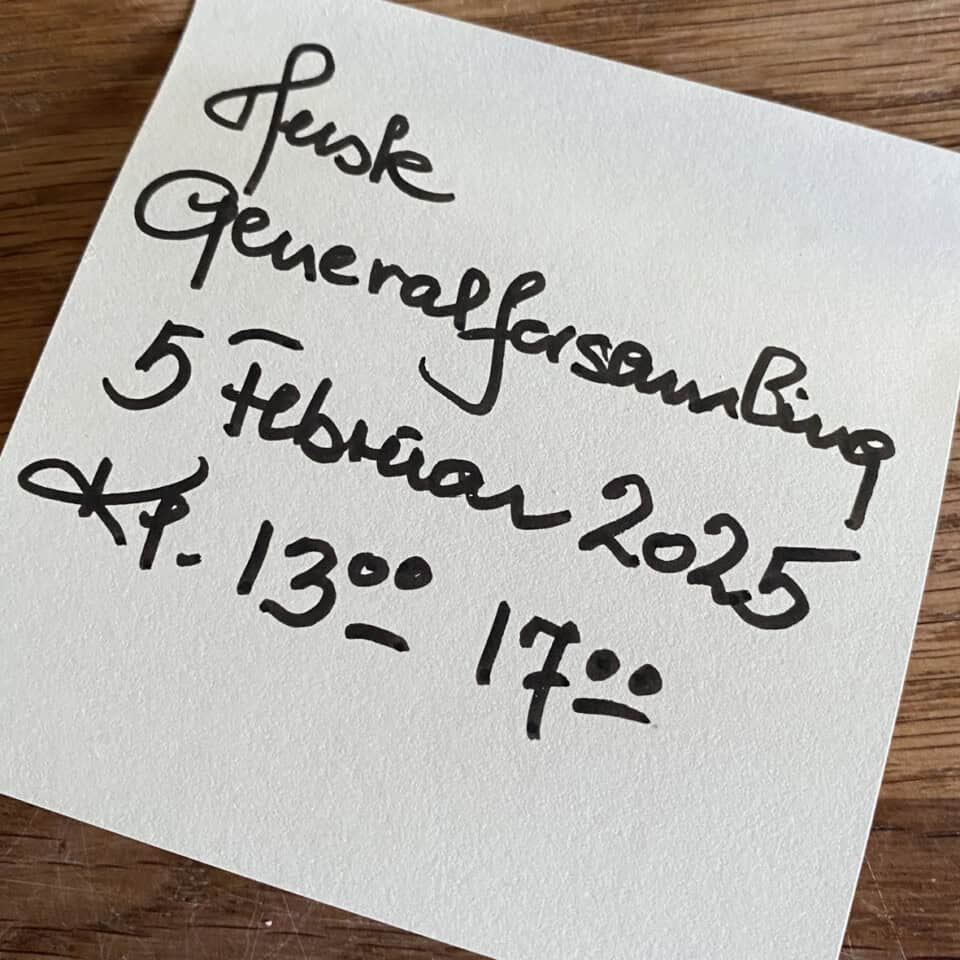 Husk
Generalforsamling
5 Februar 2025
Kl. 1300 1700